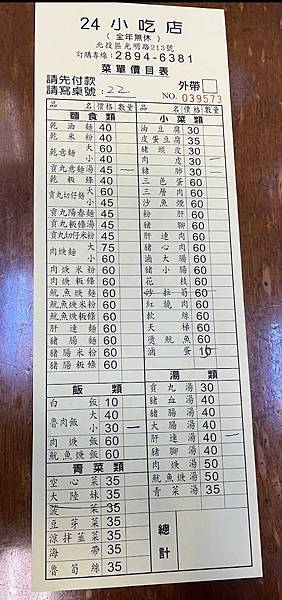 24 小吃店
( 全年無休 )
北投區光明路213號
訂購專線：2894-6381
菜單價目表
請先付款
請寫桌號：22
外帶
NO. 039573
品名 價格 數量
麵食類
乾油麵 40
乾米粉 40
乾意麵 大 60
小 40
貢丸意麵湯 45
乾粄條 40
貢丸切仔麵 大 60
小 45
貢丸陽春麵 45
貢丸粄條湯 45
貢丸切仔米粉 45
肉焿麵 大 75
小 60
肉焿米粉 60
肉焿粄條 60
魷魚焿麵 60
魷魚焿米粉 60
魷魚焿粄條 60
肝連麵 60
豬腸麵 60
豬腸米粉 60
豬腸粄條 60
飯類
白飯 10
魯肉飯 大 40
小 30 一
肉焿飯 60
魷魚焿飯 60
青菜類
空心菜 35
大陸妹 35
菠菜 35
豆芽菜 35
涼拌韮菜 35
海帶 35
魯筍絲 35
品名 價格 數量
小菜類
油豆腐 30
皮蛋豆腐 35
豬頭皮 30
肉皮 30 一
豬肺 30 一
三色蛋 60
三層肉 60
沙魚煙 60
粉肝 60
豬肚 60
肝連肉 60
豬心肉 60
滷大腸 60
豬小腸 60
花枝 60
沙拉筍 60
紅燒肉 60
軟絲 60
天梯 60
燙魷魚 60
滷蛋 10
湯類
貢丸湯 30
豬血湯 40
豬腸湯 40
大腸湯 40
肝連湯 40 一
豬腳湯 40
肉焿湯 50
魷魚焿湯 50
青菜湯 35
總計